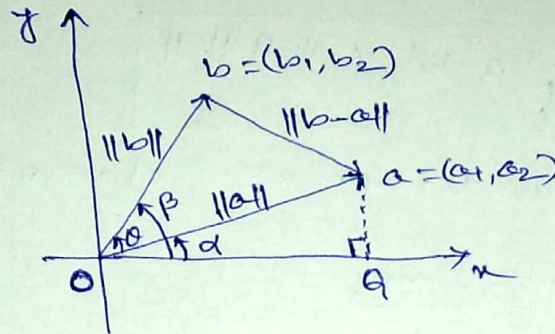 y
b = (b1, b2)
||b||
||b-a||
a = (a1, a2)
β
||a||
θ
α
O
Q
x